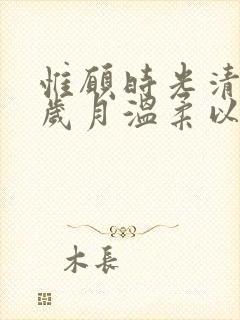 惟愿時光清
歲月溫柔以
木長